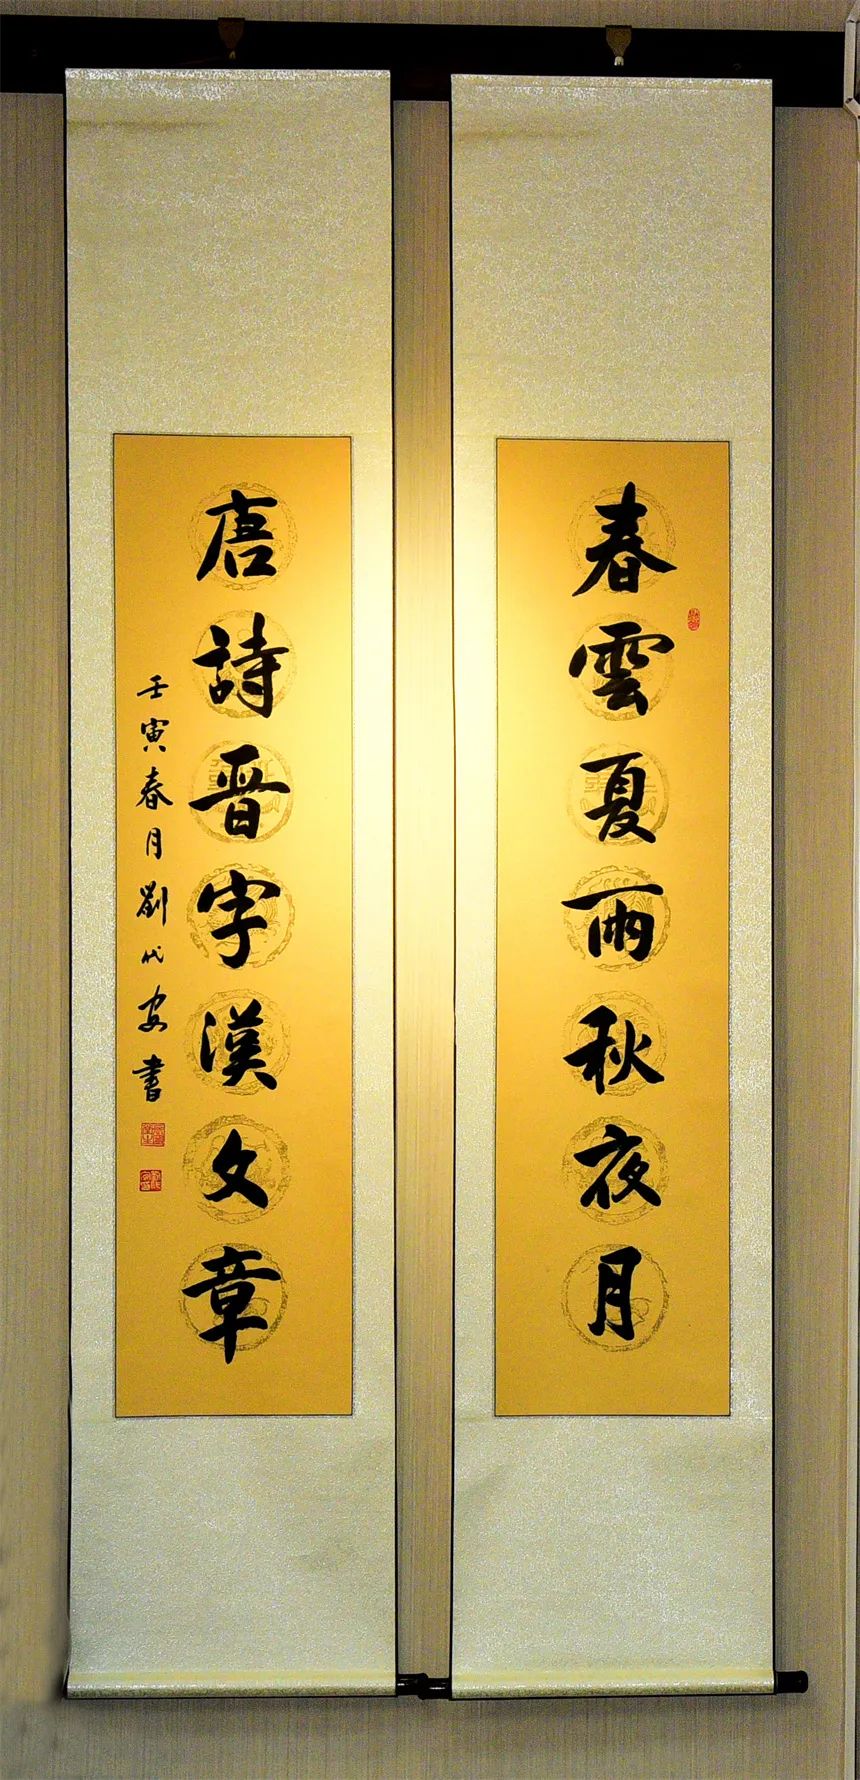 春雲夏雨秋夜月
唐詩晋字漢文章
壬寅春月劉代安書